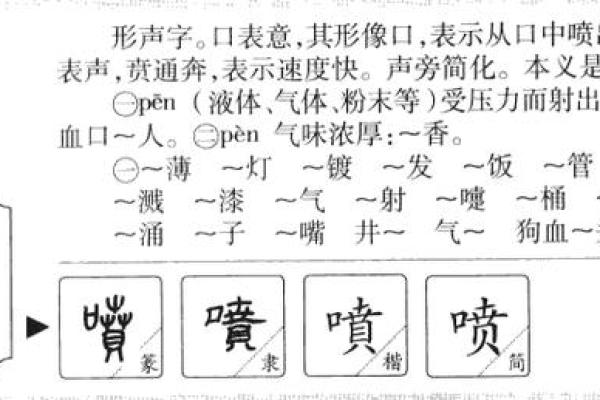 形声字。口表意，其形像口，表示从口中喷
表声，贲通奔，表示速度快。声旁简化。本义是
㊀pēn（液体、气体、粉末等）受压力而射出
血口～人。㊁pèn 气味浓厚：～香。
㊀～薄 ～灯 ～镀 ～发 ～饭 ～管
～溅 ～漆 ～气 ～射 ～嚏 ～桶
～涌 ～子 ～嘴 井～ 气～ 狗血～
噴 篆 噴 隶 噴 楷 喷 简